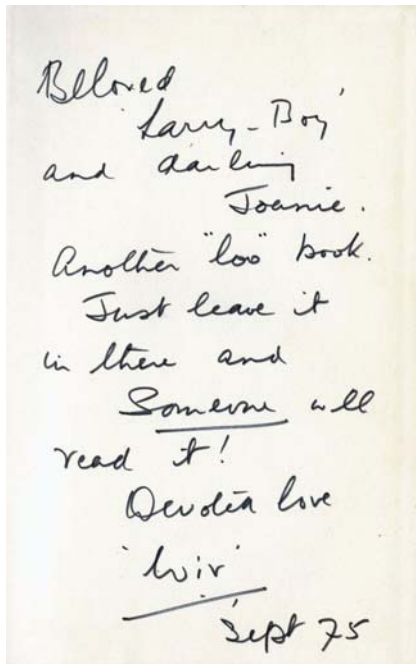 Beloved
'Larry-Boy'
and darling
Joanie.
Another "loo" book.
Just leave it
in there and
Someone will
read it!
Devoted love
'Wiv'
Sept 75